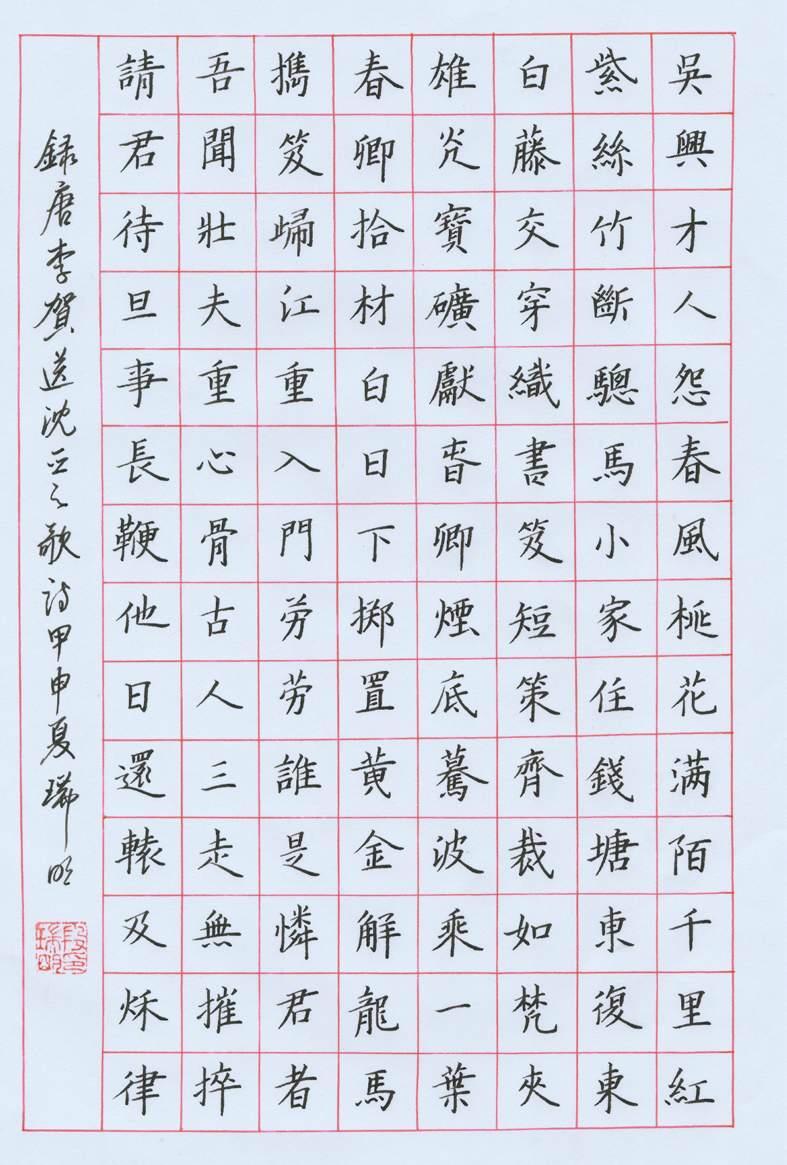 吳興才人怨春風桃花满陌千里紅
紫絲竹斷驄馬小家住錢塘東復東
白藤交穿織書笈短策齊裁如梵夾
雄光寶礦獻春卿煙底驀波乘一葉
春卿拾材白日下掷置黄金解龍馬
擕笈歸江重入門劳劳誰是憐君者
吾聞壯夫重心骨古人三走無摧捽
請君待旦事長鞭他日還轅及秋律
録唐李賀送沈亞之歌詩甲申夏瑞明
段印瑞明